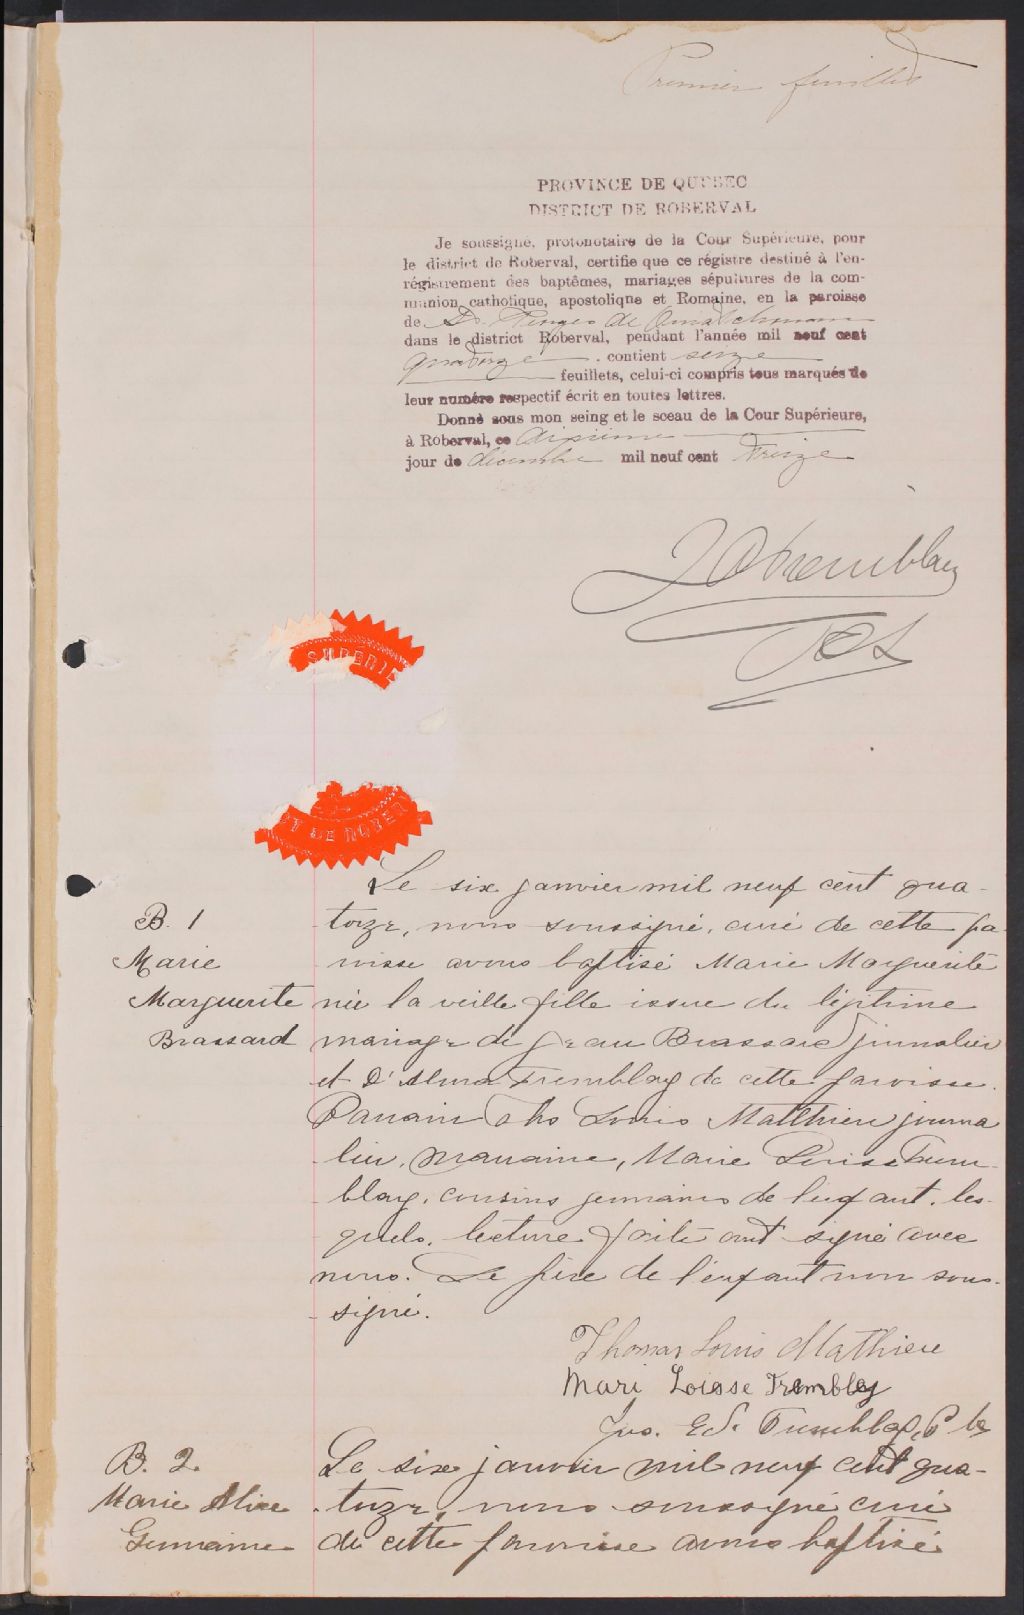 Premier feuillet
PROVINCE DE QUEBEC
DISTRICT DE ROBERVAL
Je soussigné, protonotaire de la Cour Supérieure, pour
le district de Roberval, certifie que ce régistre destiné à l'en-
régistrement des baptêmes, mariages sépultures de la com-
munion catholique, apostolique et Romaine, en la paroisse
de St. Prime de
dans le district Roberval, pendant l'année mil neuf cent
quatorze contient seize
feuillets, celui-ci compris tous marqués de
leur numéro respectif écrit en toutes lettres.
Donné sous mon seing et le sceau de la Cour Supérieure,
à Roberval, ce dixième
jour de décembre mil neuf cent treize
Tremblay
SUPERIE
DE ROBER
Le six janvier mil neuf cent qua-
B. 1 torze, nous soussigné, curé de cette pa-
Marie roisse avons baptisé Marie Marguerite
Marguerite née la veille fille issue du légitime
Brassard mariage de Jean Brassard journalier
et d'Alma Tremblay de cette paroisse.
Parrain Ths Louis Matthieu journa
lier, marraine, Marie Louise Trem-
blay, cousins germains de l'enfant, les-
quels, lecture faite ont signé avec
nous. Le père de l'enfant non sous-
signé.
Thomas Louis Mathieu
Mari Loisse Trembley
Jos. Ed. Tremblay, Ptre
B. 2. Le six janvier mil neuf cent qua-
Marie Alice torze, nous soussigné curé
Germaine de cette paroisse avons baptisé